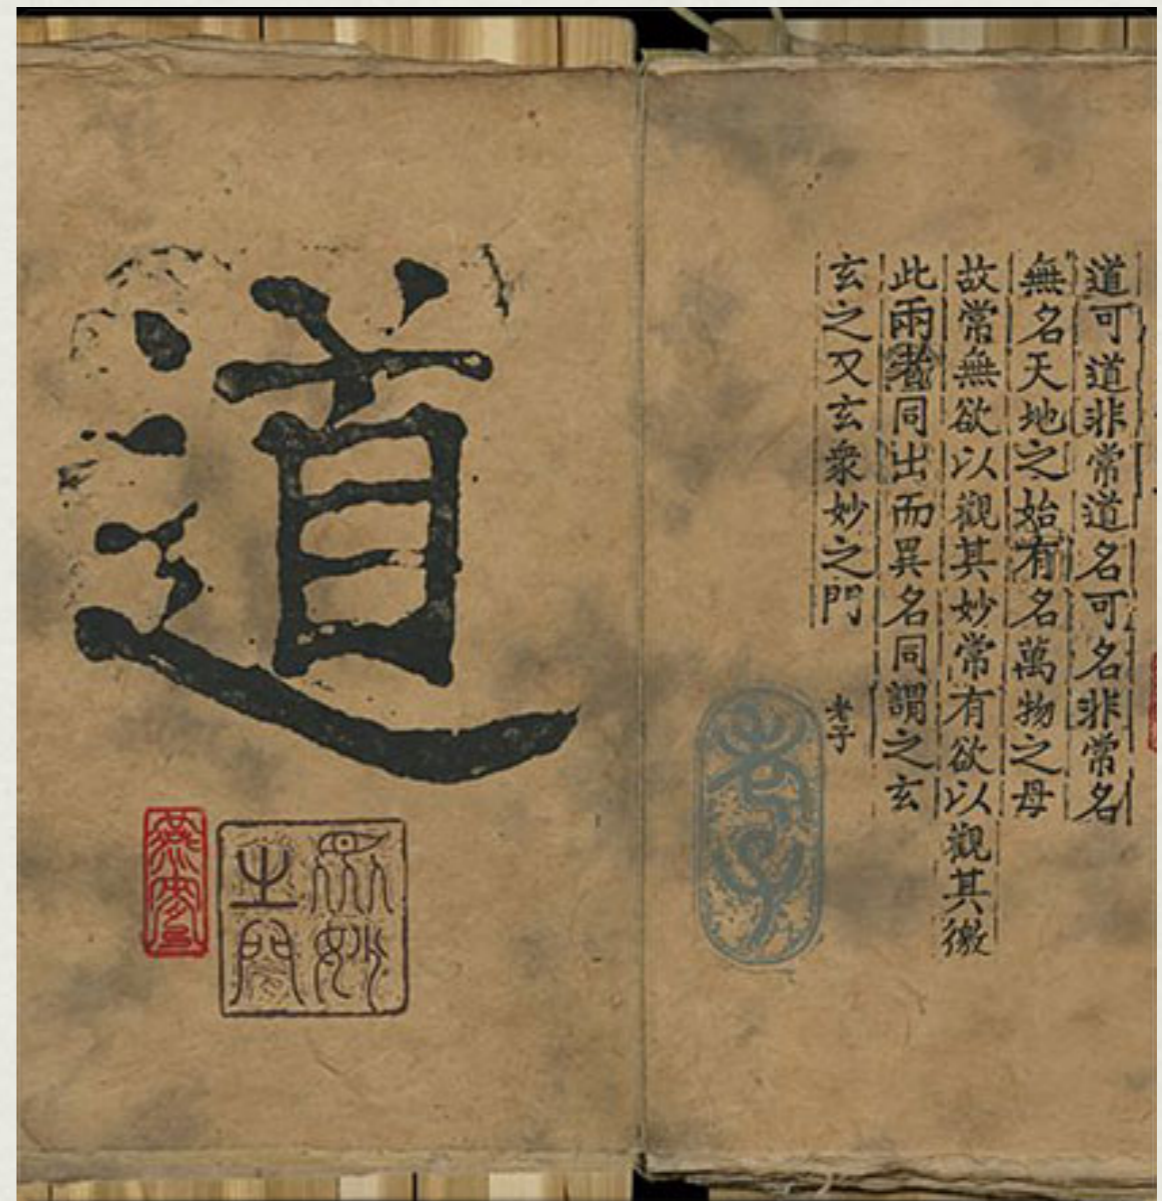 道可道非常道名可名非常名
無名天地之始有名萬物之母
故常無欲以觀其妙常有欲以觀其徼
此兩者同出而異名同謂之玄
玄之又玄衆妙之門
老子
老子
道
衆妙
之門